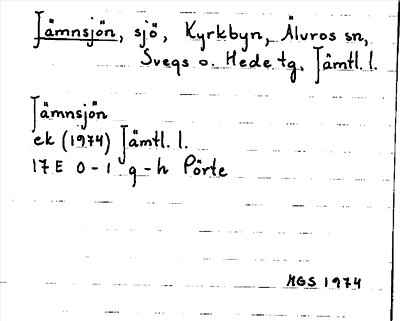 Jämnsjön, sjö, Kyrkbyn, Älvros sn,
Svegs o. Hede tg, Jämtl. l.
Jämnsjön
ek (1974) Jämtl. l.
17 E 0 - 1 g - h Pörte
MGS 1974